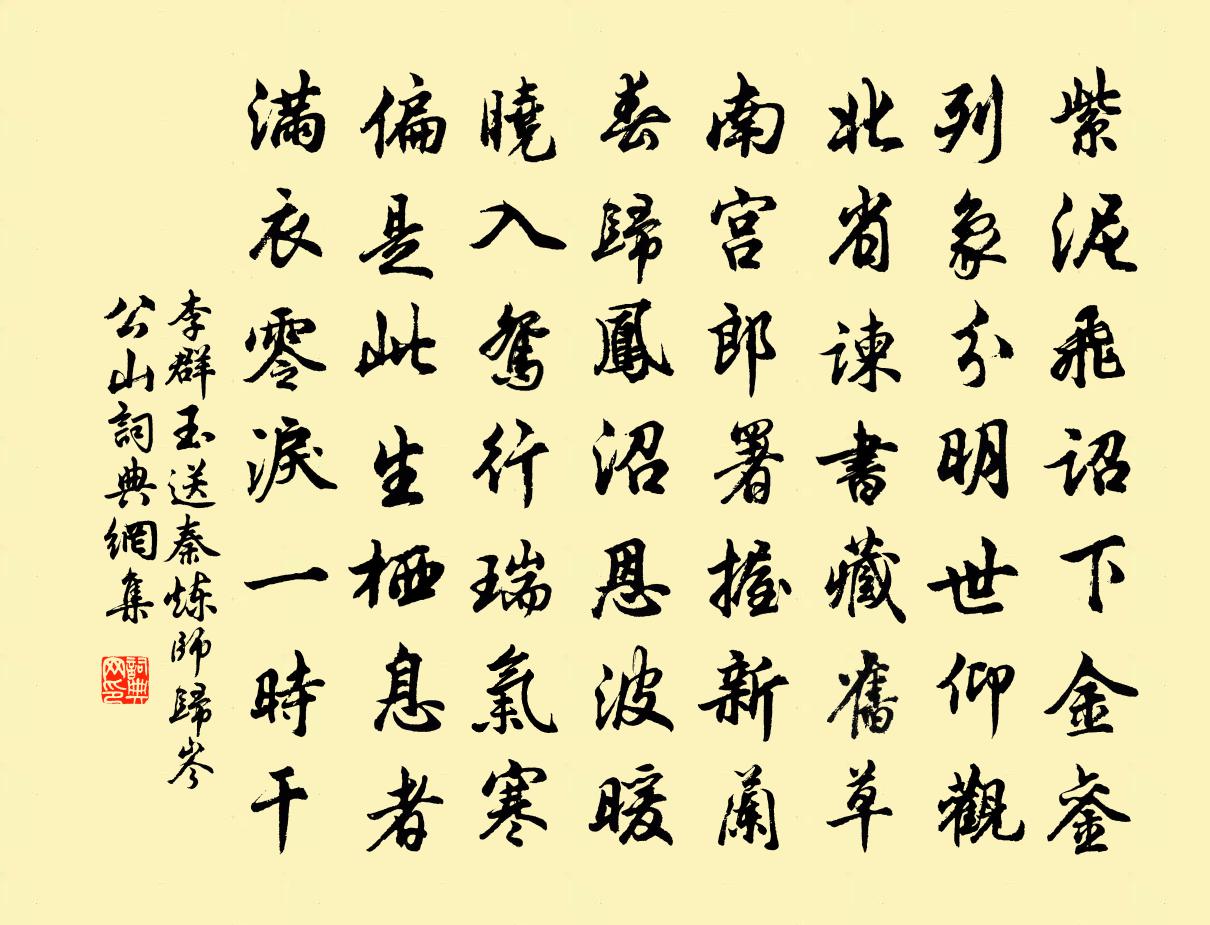 紫泥飛詔下金鑾
列象分明世仰觀
北省諫書藏舊草
南宮郎署握新蘭
春歸鳳沼恩波暖
曉入鴛行瑞氣寒
偏是此生栖息者
滿衣零淚一時干
李群玉送秦炼師歸岑
公山詞典網集
詞典网印